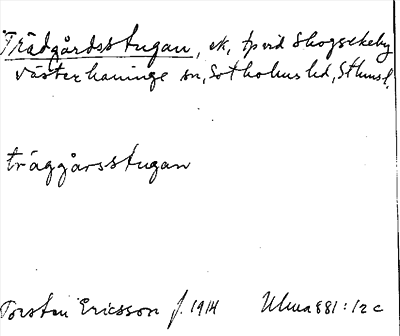 Trädgårdsstugan, ek, tp vid Skogsekeby
Västerhaninge sn, Sotholms hd, Sthms l.
träggårsstugan
Torsten Ericsson f. 1914 Ulma 881:12 c